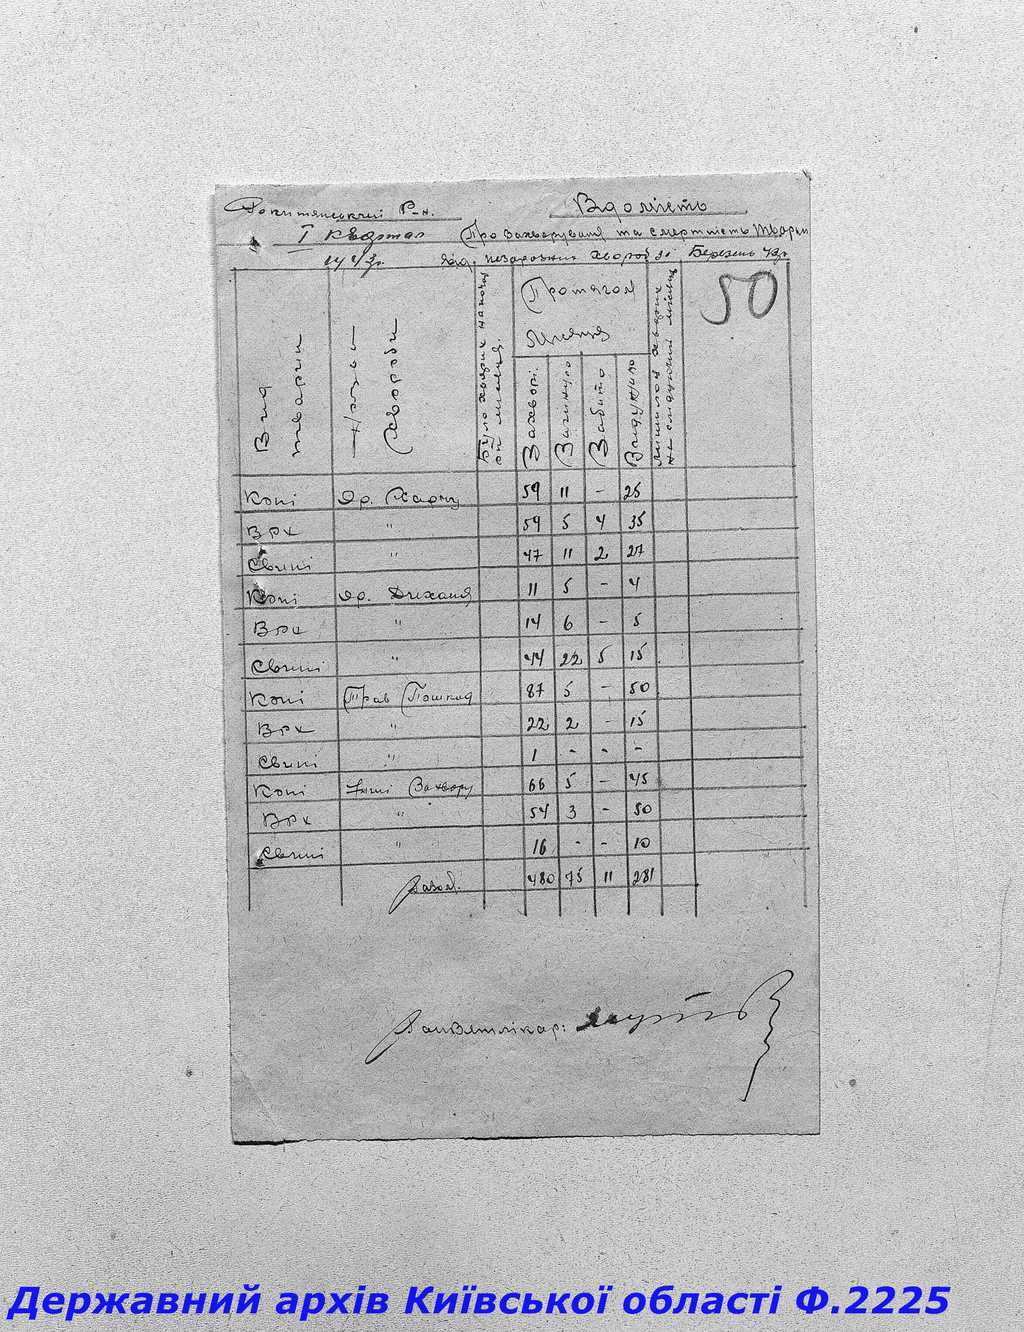 Рокитянський Р-н. Вдомість
І квартал Про захворуваня та смертність тварин
від. незаразних хвороб за Березень 43р
50
Вид тварин
хвороби
Було хворих на поча
Протягом
місяця
Захворі.
Загинуло
Забито
Видужило
Коні Ор. 59 11 - 25
ВРХ " 54 5 4 35
Свині " 47 11 2 27
Коні Ор. Диханя 11 5 - 4
ВРХ " 14 6 - 5
Свині " 44 22 5 15
Коні Трав Пошкод 87 5 - 50
ВРХ " 22 2 - 15
Свині " 1 - - -
Коні Інші Захвору 66 5 - 45
ВРХ " 54 3 - 50
Свині " 16 - - 10
Разом. 480 75 11 281
Райветлікар:
Державний архів Київської області Ф.2225